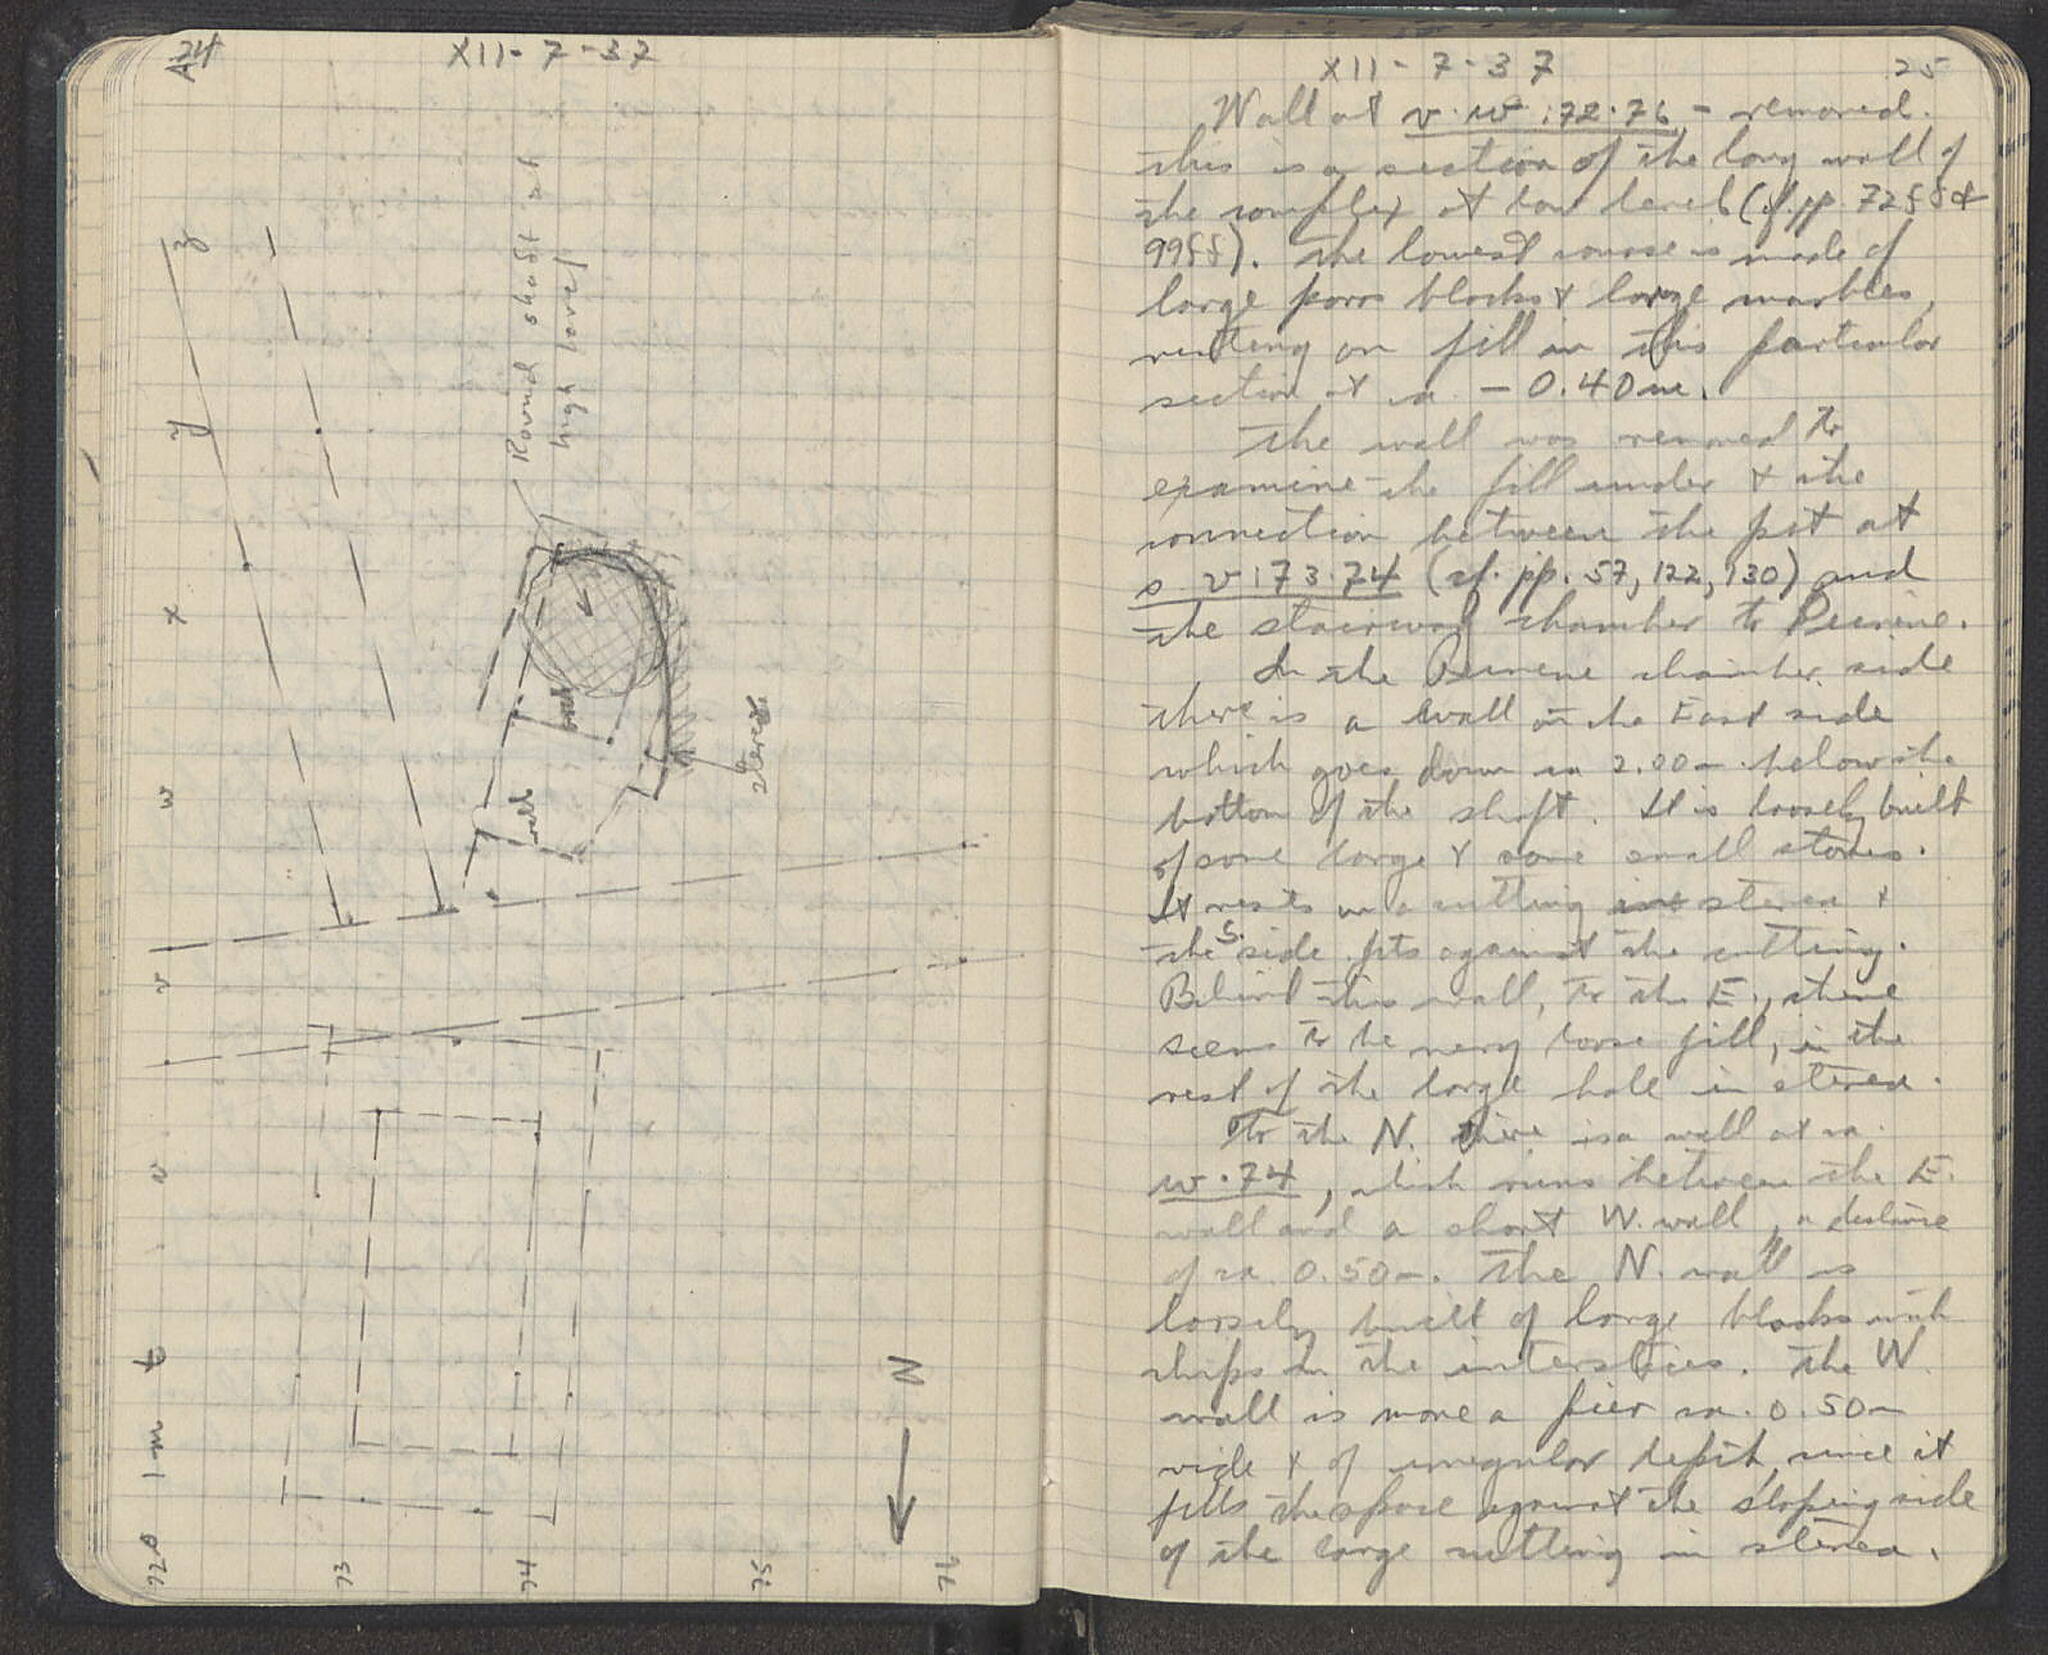 24
XII - 7 - 37
Round shaft at
high level
z
y
x
w
v
v
t
1 m
wall
wall
stereo
N
72 s
73
74
75
76
XII - 7 - 37
25
Wall at v · w : 72 · 76 - removed.
This is a section of the long wall of
the complex at low level (cf. pp. 72ff &
99ff). The lowest course is made of
large poros blocks & large marbles,
resting on fill in this particular
section at ca. - 0.40 m.
The wall was removed to
examine the fill under & the
connection between the pit at
s v : 73 · 74 (cf. pp. 57, 122, 130) and
the stairway chamber to Peirene.
In the Peirene chamber side
there is a wall on the East side
which goes down ca 2.00 m. below the
bottom of the shaft. It is loosely built
of some large & some small stones.
It rests in a cutting in stereo &
the S. side fits against the cutting.
Behind this wall, to the E., there
seems to be very loose fill, in the
rest of the large hole in stereo.
To the N. there is a wall at ca.
w · 74, which runs between the E.
wall and a short W. wall, a distance
of ca. 0.50 m. The N. wall is
loosely built of large blocks with
chips in the interstices. The W.
wall is more a pier ca. 0.50 m
wide & of irregular depth, since it
fills the space against the sloping side
of the large cutting in stereo.